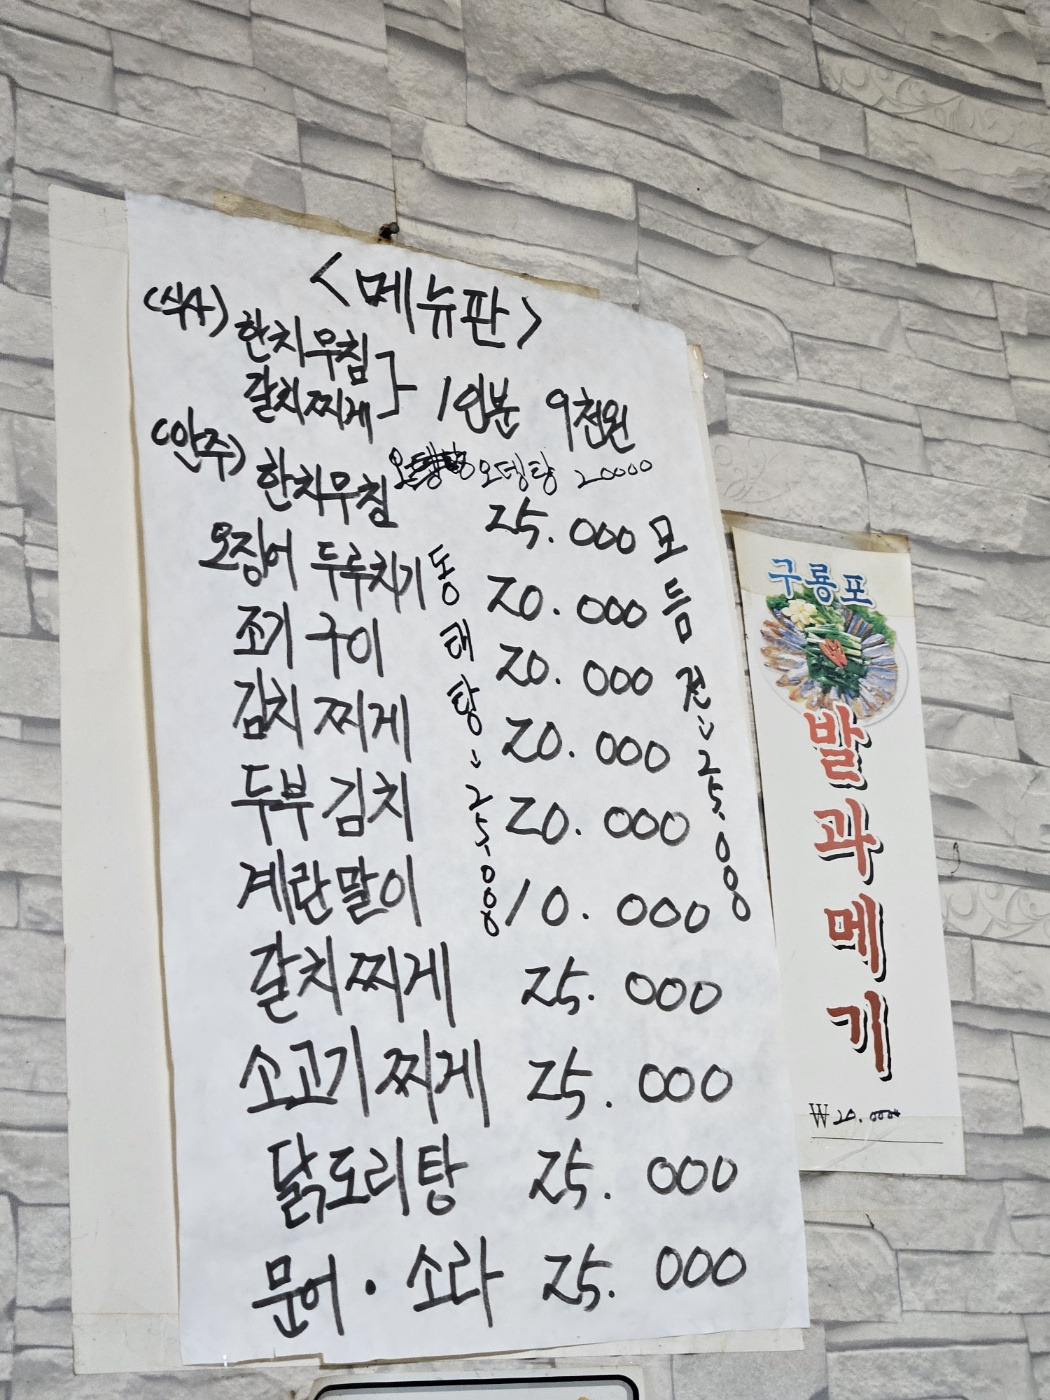 <메뉴판>
(식사) 한치무침
갈치찌게 1인분 9천원
(안주) 오뎅탕 20000
한치무침 25.000
오징어 두루치기 20.000
조기 구이 20.000
김치 찌게 20.000
두부 김치 20.000
계란말이 10.000
갈치찌게 25.000
소고기 찌게 25.000
닭도리탕 25.000
문어 · 소라 25.000
동태탕→25.000
모듬전→25.000
구룡포
발과메기
₩20.000